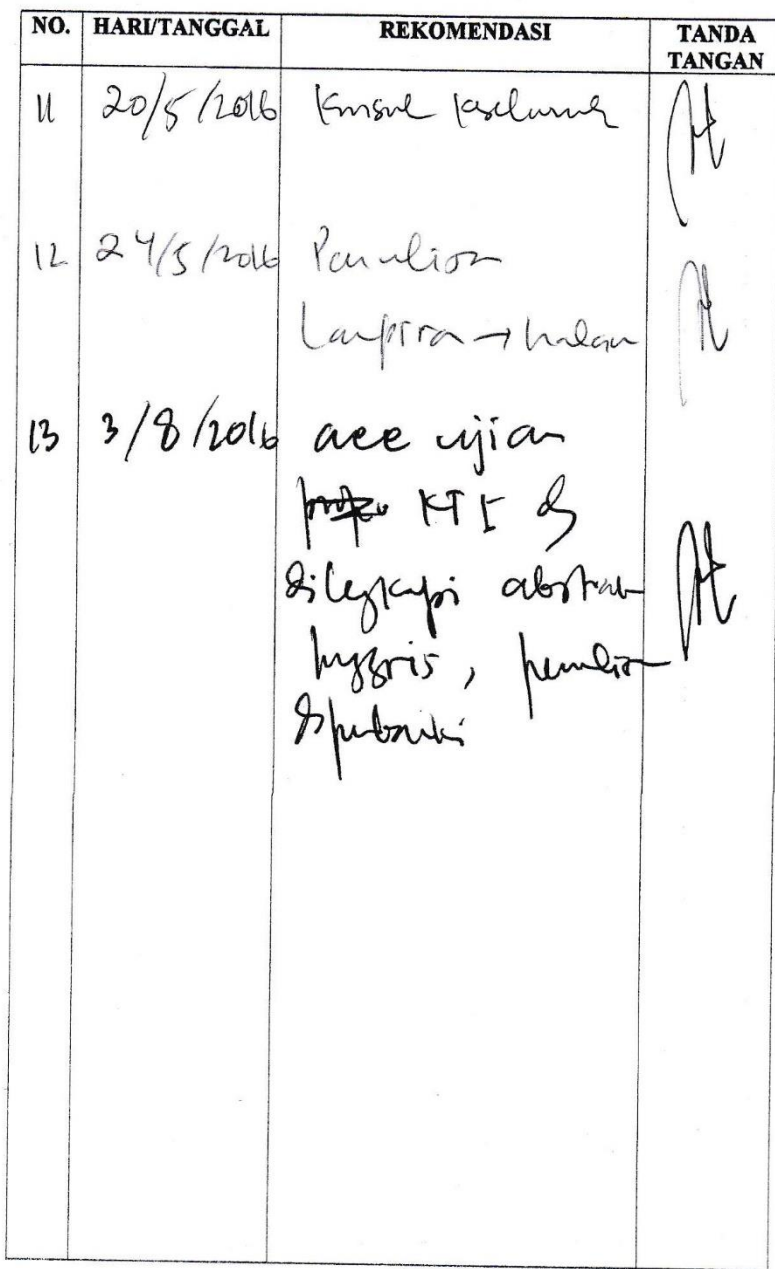 NO. HARI/TANGGAL REKOMENDASI TANDA TANGAN
11 20/5/2016 Konsul
12 24/5/2016 Penulisan
Lampiran → halaman
13 3/8/2016 acc ujian
KTI dg
dilengkapi abstrak
Inggris, penulisan
diperbaiki